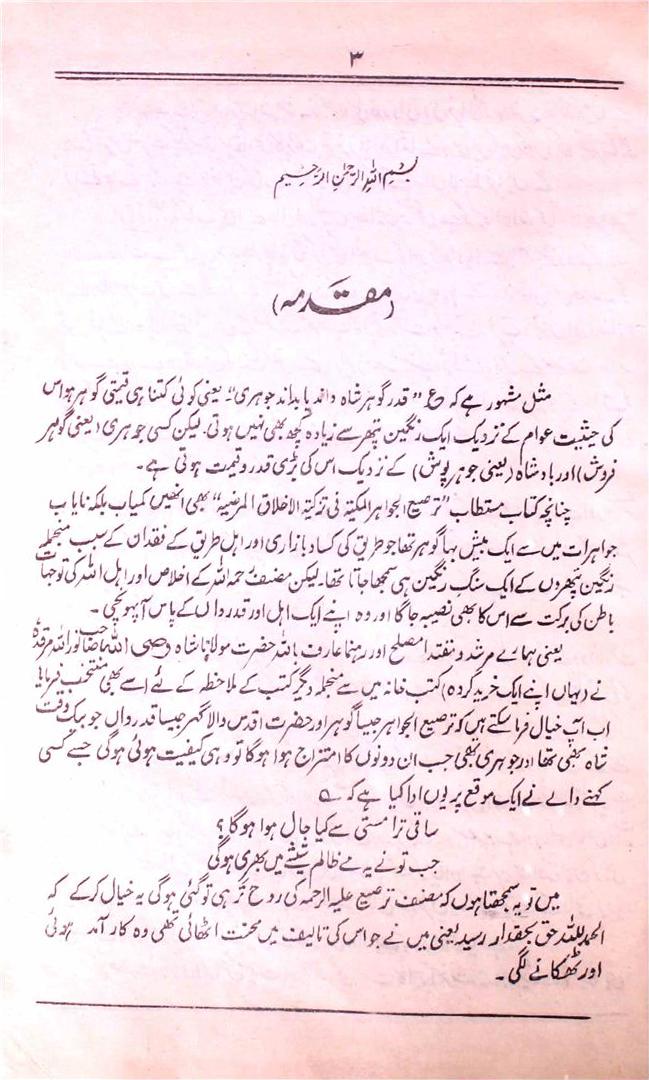 ۳
بِسْمِ اللّٰهِ الرَّحْمٰنِ الرَّحِیْمِ
(مقدمہ)
مثل مشہور ہے کہ ع "قدر گوہر شاہ داند یا بداند جوہری" یعنی کوئی کتنا ہی قیمتی گوہر ہو اس
کی حیثیت عوام کے نزدیک ایک رنگین پتھر سے زیادہ کچھ بھی نہیں ہوتی. لیکن کسی جوہری (یعنی گوہر
فروش) اور بادشاہ (یعنی جوہر پوش) کے نزدیک اس کی بڑی قدر و قیمت ہوتی ہے۔
چنانچہ کتاب مستطاب "ترصیع الجواهر المکیۃ فی تزکیۃ الاخلاق المرضیہ" بھی انھیں کمیاب بلکہ نایاب
جواہرات میں سے ایک بیش بہا گوہر تھا جو طریق کی کساد بازاری اور اہل طریق کے فقدان کے سبب منجملہ
رنگین پتھروں کے ایک سنگ رنگین ہی سمجھا جاتا تھا۔ لیکن مصنفؒ رحمہ اللہ کے اخلاص اور اہل اللہ کی توجہات
باطن کی برکت سے اس کا بھی نصیبہ جاگا اور وہ اپنے ایک اہل اور قدرداں کے پاس آ پہونچی۔
یعنی ہمارے مرشد و مقتدا مصلح اور رہنما عارف باللہ حضرت مولانا شاہ وصی اللہ صاحب نور اللہ مرقدہٗ
نے (یہاں اپنے ایک خرید کردہ) کتب خانہ میں سے منجملہ دیگر کتب کے ملاحظہ کے لئے اسے بھی منتخب فرمایا
اب آپ خیال فرما سکتے ہیں کہ ترصیع الجواہر جیسا گوہر اور حضرت اقدس والا گہر جیسا قدرداں جو بیک وقت
شاہ بھی تھا اور جوہری بھی جب ان دونوں کا امتزاج ہوا ہوگا تو وہی کیفیت ہوئی ہوگی جسے کسی
کہنے والے نے ایک موقع پر یوں ادا کیا ہے کہ ؎
ساقی ترا مستی سے کیا حال ہوا ہوگا؟
جب تو نے یہ مے ظالم شیشے میں بھری ہوگی
میں تو یہ سمجھتا ہوں کہ مصنف ترصیع علیہ الرحمہ کی روح تڑ ہی تو گئی ہوگی یہ خیال کر کے کہ
الحمد للہ حق بحقدار رسید یعنی میں نے جو اس کی تالیف میں محنت اٹھائی تھی وہ کار آمد ہوئی
اور ٹھکانے لگی۔